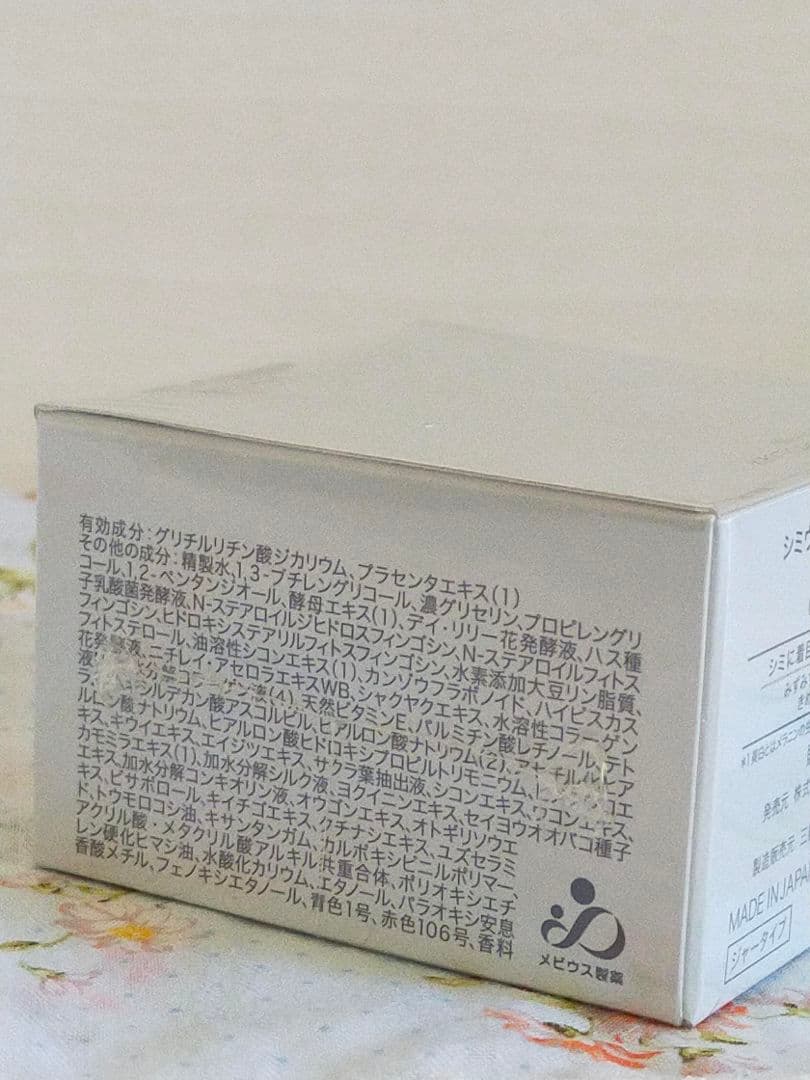 有効成分:グリチルリチン酸ジカリウム、プラセンタエキス(1)
その他の成分:精製水、1,3-ブチレングリコール、濃グリセリン、プロピレングリ
コール、1,2-ペンタンジオール、酵母エキス(1)、デイ・リリー花発酵液、ハス種
子乳酸菌発酵液、N-ステアロイルジヒドロスフィンゴシン、N-ステアロイルフィトス
フィンゴシン、ヒドロキシステアリルフィトスフィンゴシン、水素添加大豆リン脂質、
フィトステロール、油溶性シコンエキス(1)、カンゾウフラボノイド、ハイビスカス
花発酵液、ニチレイ・アセロラエキスWB、シャクヤクエキス、水溶性コラーゲン
液(4)、天然ビタミンE、パルミチン酸レチノール、テト
シルデカン酸アスコルビル、ヒアルロン酸ナトリウム(2)、
ルロン酸ナトリウム、ヒアルロン酸ヒドロキシプロピルトリモニウム、
キス、キウイエキス、エイジツエキス、サクラ葉抽出液、シコンエキス、ウコンエキス、
カモミラエキス(1)、加水分解シルク液、ヨクイニンエキス、セイヨウオオバコ種子
エキス、加水分解コンキオリン液、オウゴンエキス、オトギリソウエ
キス、ビサボロール、キイチゴエキス、クチナシエキス、ユズセラミ
ド、トウモロコシ油、キサンタンガム、カルボキシビニルポリマー、
アクリル酸・メタクリル酸アルキル共重合体、ポリオキシエチ
レン硬化ヒマシ油、水酸化カリウム、エタノール、パラオキシ安息
香酸メチル、フェノキシエタノール、青色1号、赤色106号、香料
メビウス製薬
シミウ
シミに着目
みずみ
きめ
*1 美白とはメラニンの生
発売元 株式
製造販売元 三
MADE IN JAPAN
ジャータイプ